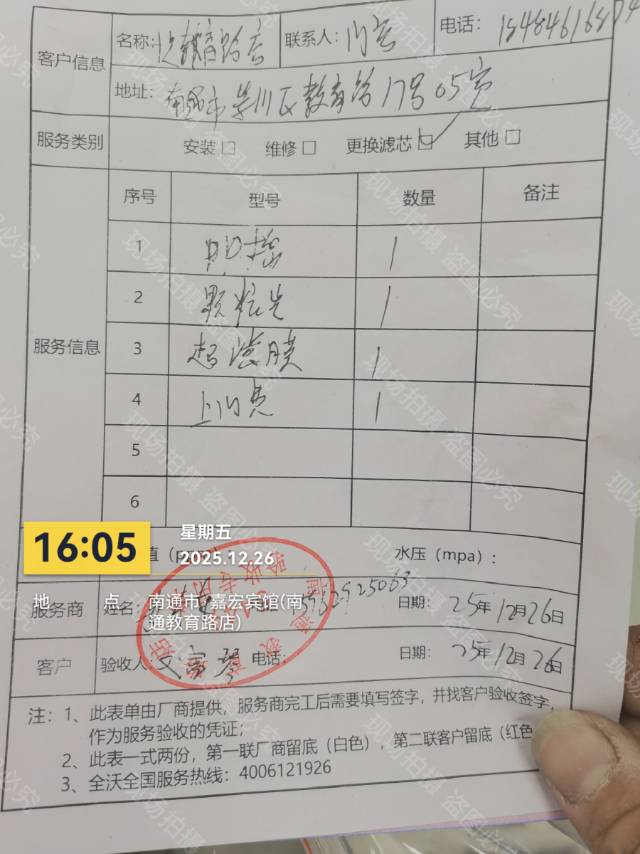 客户信息
名称:
教育路店
联系人:
电话:
地址: 南通市崇川区教育路17号05室
服务类别 安装□ 维修□ 更换滤芯☑ 其他□
服务信息
序号 型号 数量 备注
1 PP棉 1
2 颗粒炭 1
3 超滤膜 1
4 1
5
6
16:05
星期五
2025.12.26
水压（mpa）:
地 点: 南通市·嘉宏宾馆(南通教育路店)
服务商 姓名: 日期: 25年12月26日
客户 验收人: 电话: 日期: 25年12月26日
注: 1、此表单由厂商提供，服务商完工后需要填写签字，并找客户验收签字，
作为服务验收的凭证;
2、此表一式两份，第一联厂商留底（白色），第二联客户留底（红色
3、全沃全国服务热线: 4006121926
现场拍摄 盗图必究